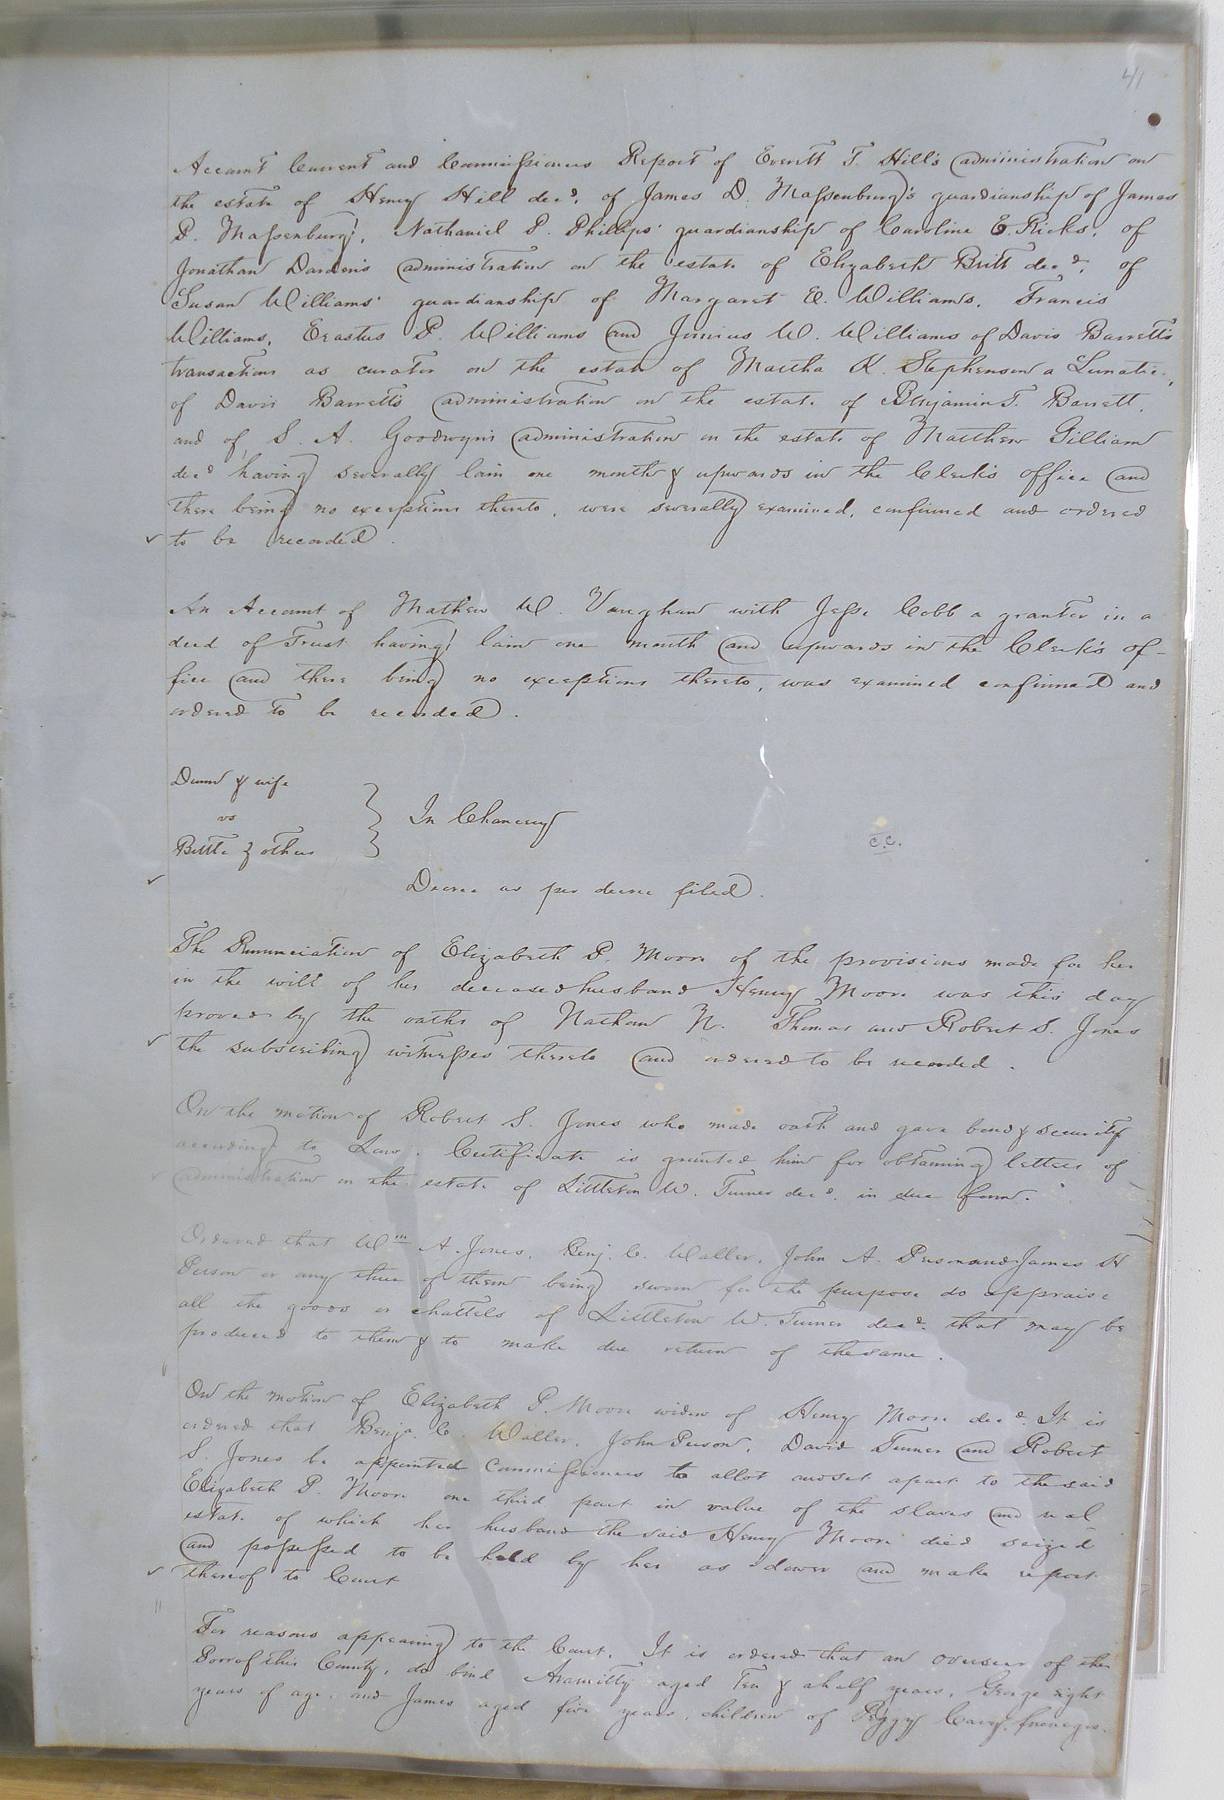 41
Account Current and Commissioners Report of Everett T. Hill's administration on
the estate of Henry Hill decd. of James D. Massenburg's guardianship of James
D. Massenburg, Nathaniel P. Phillips' guardianship of Caroline E. Ricks, of
Jonathan Darden's administration on the estate of Elizabeth Britt decd, of
Susan Williams' guardianship of Margaret E. Williams, Francis
Williams, Erastus P. Williams and Junius W. Williams of Davis Barrett's
transactions as curator on the estate of Martha K. Stephenson a Lunatic,
of Davis Barrett's administration on the estate of Benjamin T. Barrett,
and of S. A. Goodwyn's administration on the estate of Matthew Gilliam
decd having severally lain one month & upwards in the Clerk's office and
there being no exceptions thereto, were severally examined, confirmed and ordered
to be recorded.
An Account of Mathew W. Vaughan with Jesse Cobb a grantor in a
deed of Trust having lain one month and upwards in the Clerk's of-
fice and there being no exceptions thereto, was examined confirmed and
ordered to be recorded.
Dunn & wife
vs
Britt & others
In Chancery
C.C.
Decree as per decree filed.
The Renunciation of Elizabeth P. Moore of the provisions made for her
in the will of her deceased husband Henry Moore was this day
proved by the oaths of Nathan N. Thomas and Robert S. Jones
the subscribing witnesses thereto and ordered to be recorded.
On the motion of Robert S. Jones who made oath and gave bond & security
according to Law. Certificate is granted him for obtaining letters of
administration on the estate of Littleton W. Turner decd. in due form.
Ordered that Wm A. Jones, Benj. C. Waller, John A. Person and James H
Person or any three of them being sworn for the purpose do appraise
all the goods or chattels of Littleton W. Turner decd. that may be
produced to them & to make due return of the same.
On the motion of Elizabeth P. Moore widow of Henry Moore decd. It is
ordered that Benja. C. Waller, John Person, David Turner and Robert
S. Jones be appointed Commissioners to allot and set apart to the said
Elizabeth P. Moore one third part in value of the slaves and real
estate of which her husband the said Henry Moore died seized
and possessed to be held by her as dower and make report
thereof to Court
For reasons appearing to the Court, It is ordered that an overseer of the
Poor of this County, do bind aged Ten & a half years, George eight
years of age, and James aged five years, children of Peggy Cary, free negro.